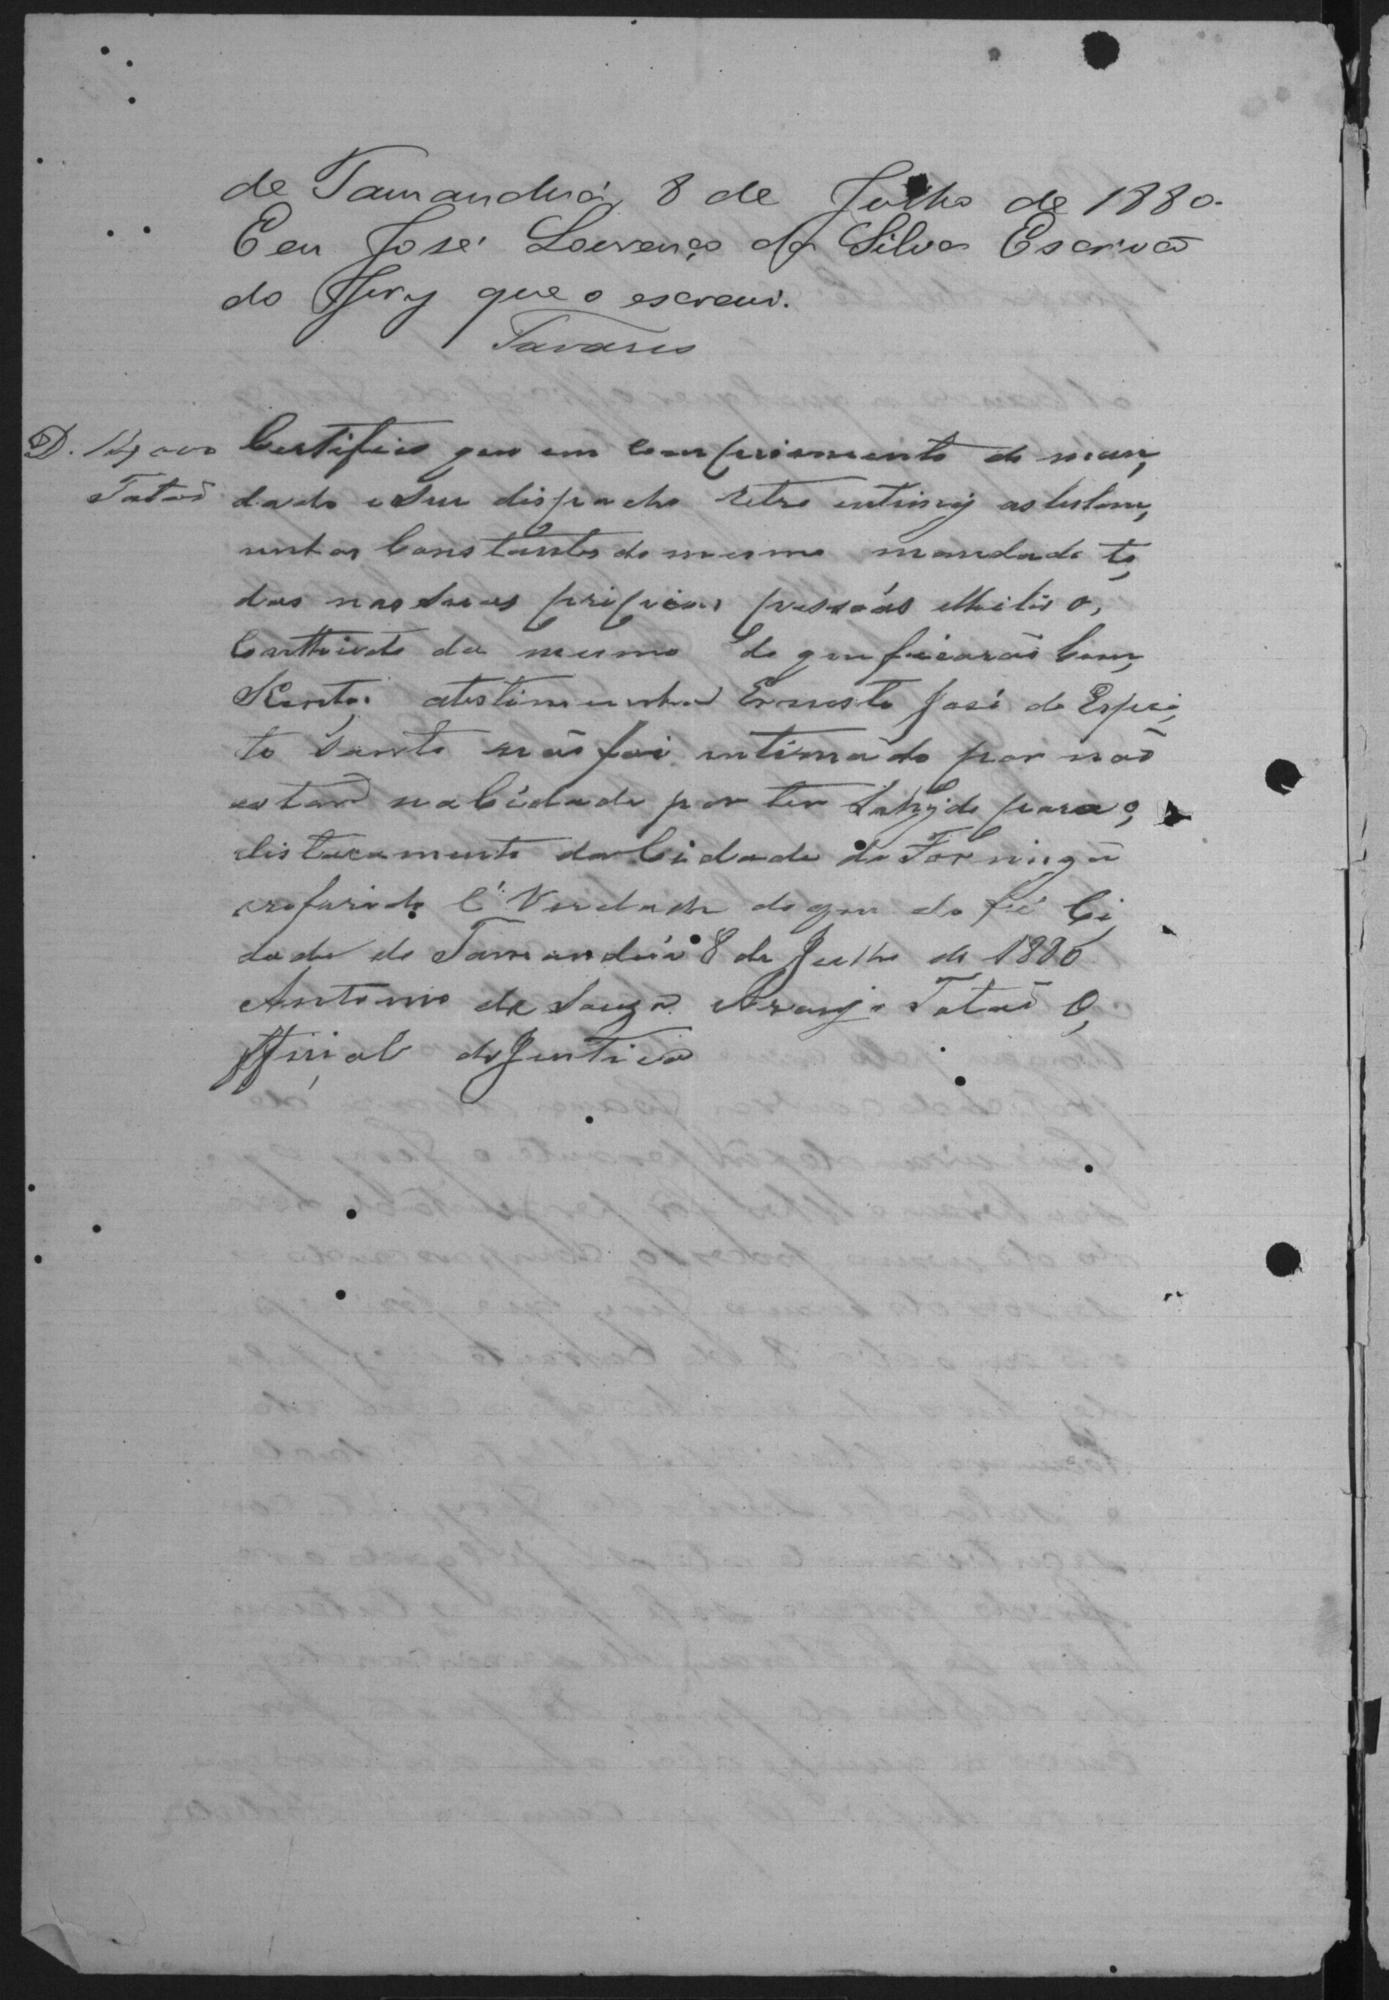 de Tamanduá, 8 de Julho de 1880.
E eu José Lourenço da Silva Escrivão
do Jury que o escrevi.
Tavares
D. 14,000 Certifico que em comprimento do man,
Tatão dado e seu dispacho retro intimej as testem,
unhas Constantes do mesmo mandado to,
das nas suas pripias pessoas e lhe li o,
Conthiudo do mesmo do que ficarão Cem,
Scentes atestimunha Ernesto José do Espri,
to Santo não foi intimado por não
estar na Cidade por ter Sahydo para o,
distacamento da Cidade da Formiga
referido é Verdade do que do fé Ci,
dade de Tamanduá 8 de Julho de 1880
Antonio de Souza Araujo Tatão O,
fficial de Justica